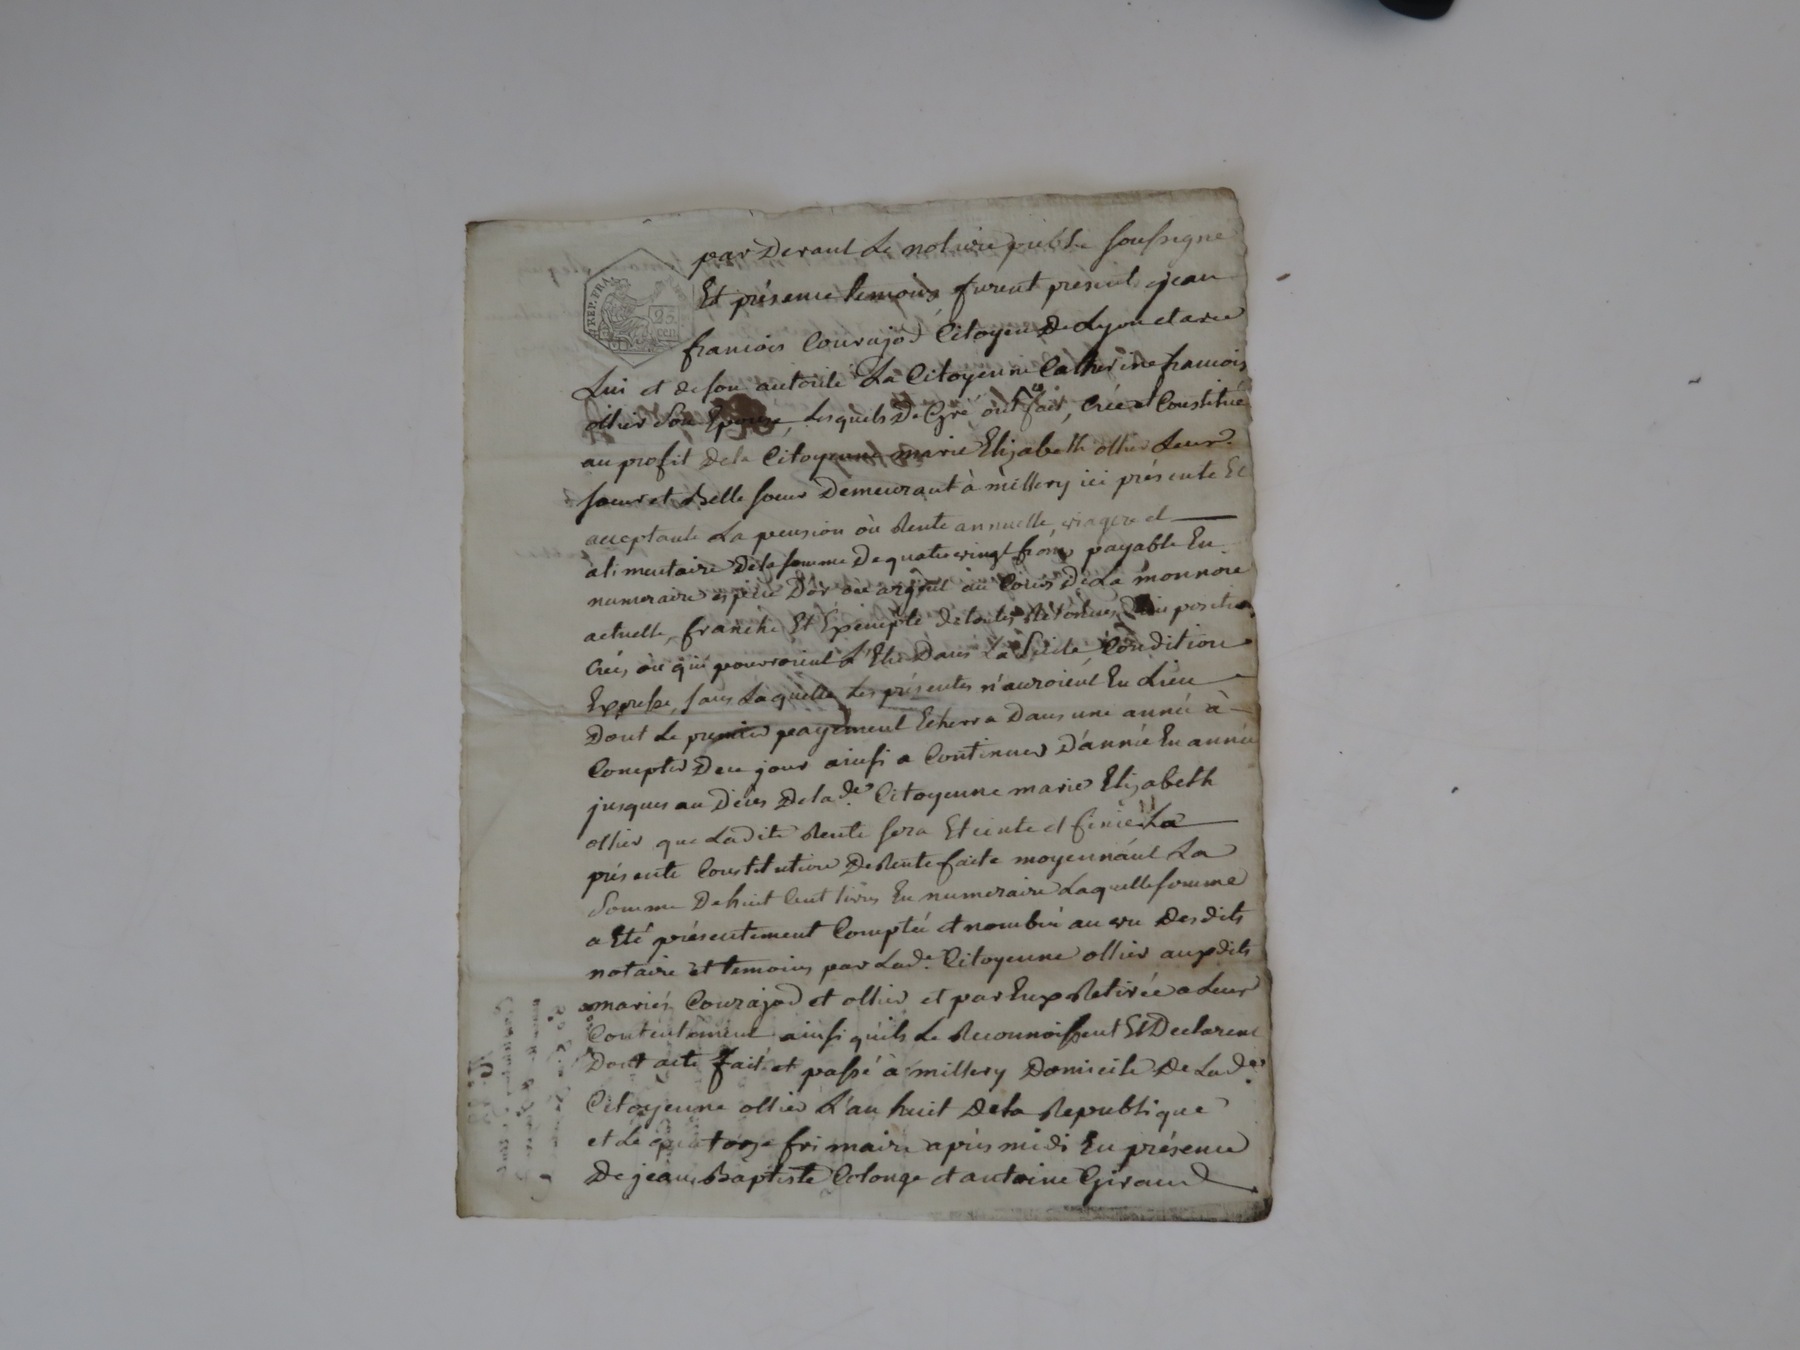 REP. FRA.
25
cen
par Devant Le notaire public soussigné
Et présence temoins furent present jean
francois Courajod Citoyen De Lyon et avec
Lui et de son autorité La Citoyenne Catherine francois
ollier Son Epouse, Lesquels De Gré ont fait, Créé et Constitué
au profit dela Citoyenne marie Elizabeth ollier Leur
soeur et Belle soeur Demeurant à millery ici présente Et
acceptante La pension où Rente annuelle viagere et
alimentaire Dela somme De quatre vingt francs payable En
numeraire espèce D'or ou argent au Cours De La monnoie
actuelle, franche Et Exempte de toutes Retenues D'imposition
Créés où qui pourroient L'Etre Dans La Suite Condition
Expresse, sans Laquelle Les présentes n'auroient Eu Lieu
Dont Le premier payement Echerra Dans une année à
Compter De ce jour ainsi a Continuer D'année En année
jusques au Décès De la de. Citoyenne marie Elizabeth
ollier que Ladite Rente sera Eteinte et finie La
présente Constitution De Rente faite moyennant La
Somme De huit Cent livres En numeraire Laquelle somme
a Eté présentement Comptée et nombrée au vu Desdits
notaire et temoins par Lade. Citoyenne ollier auxdits
mariés Courajod et ollier et par Eux Retirée a Leur
Contentement ainsi qu'ils Le Reconnoissent Et Declarent
Dont acte fait et passé à millery Domicile De La de.
Citoyenne ollier L'an huit Dela Republique
et Le quatorze frimaire après midi En présence
De jean Baptiste Colonge et antoine Giraud